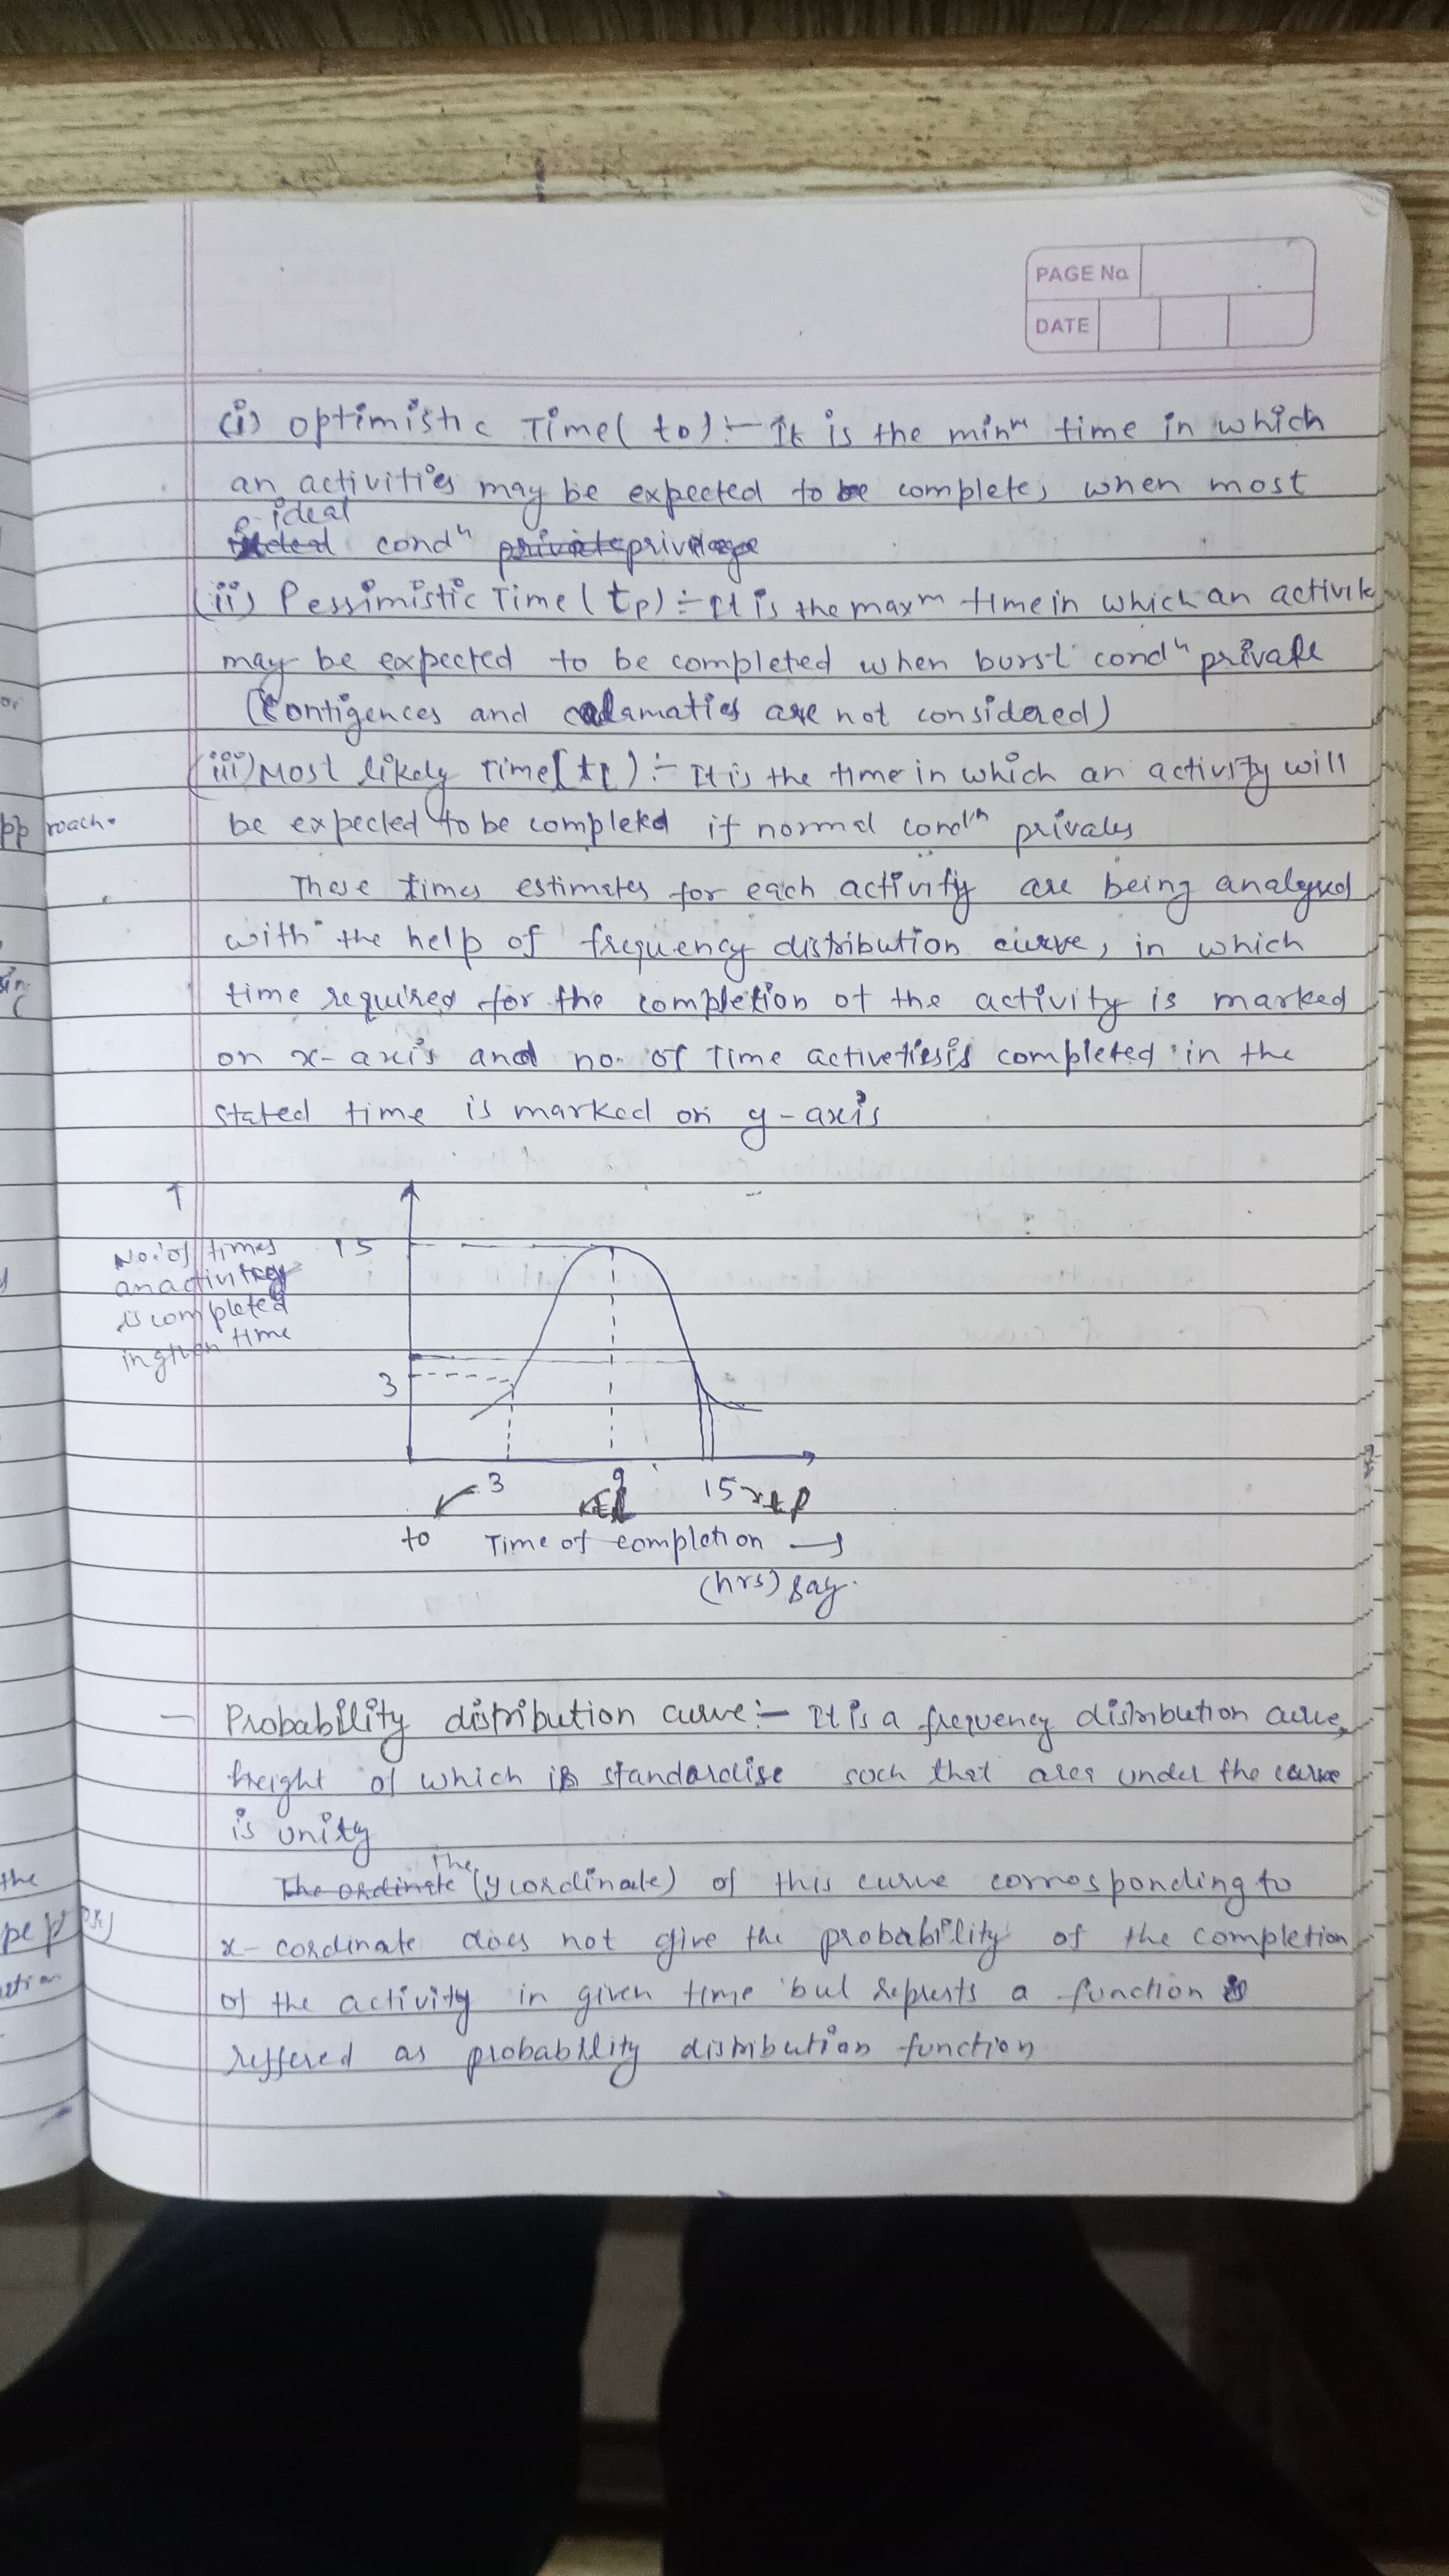 PAGE No.
DATE
(i) Optimistic Time (to) :- It is the minm time in which
an activities may be expected to be complete, when most
ideal
condn privilege
(ii) Pessimistic Time (tp) :- It is the maxm time in which an activit
may be expected to be completed when burst condn privale
(Contigences and calamaties are not considered)
(iii) Most likely Time (tl) :- It is the time in which an activity will
be expected to be completed if normal condn privales
These times estimates for each activity are being analysed
with the help of frequency distribution curve, in which
time required for the completion of the activity is marked
on x-axis and no. of Time activeties is completed in the
stated time is marked on y-axis
No. of times
an activity
is completed
in given time
15
3
3
9
15
tl
tp
to
Time of completion →
(hrs) say.
— Probability distribution curve :- It is a frequency distribution curve,
height of which is standardise such that area under the curve
is unity
The
The ordinate (y cordinate) of this curve corrosponding to
x-cordinate does not give the probability of the completion
of the activity in given time but represts a function
reffered as probability distribution function
pproach.
the